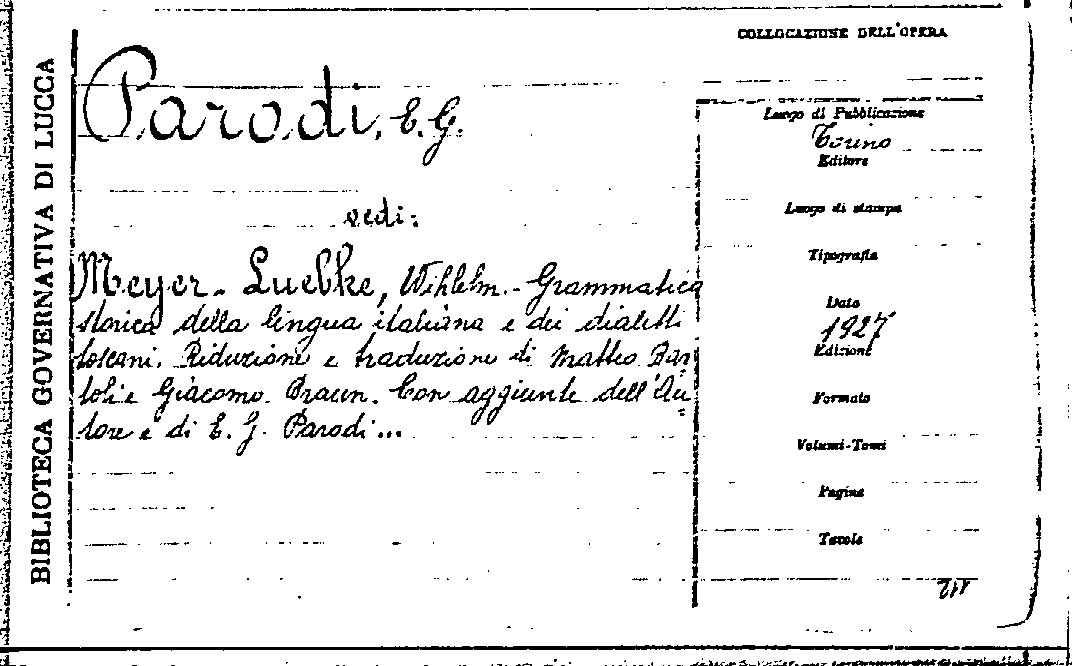 BIBLIOTECA GOVERNATIVA DI LUCCA
COLLOCAZIONE DELL'OPERA
Parodi, E. G.
vedi:
Meyer-Luebke, Wihlelm.- Grammatica
storica della lingua italiana e dei dialetti
toscani. Riduzione e traduzione di Matteo Bar
toli e Giacomo Braun. Con aggiunte dell'Au=
tore e di E. G. Parodi...
Luogo di Pubblicazione
Torino
Editore
Luogo di stampa
Tipografia
Data
1927
Edizione
Formato
Volumi-Tomi
Pagine
Tavole